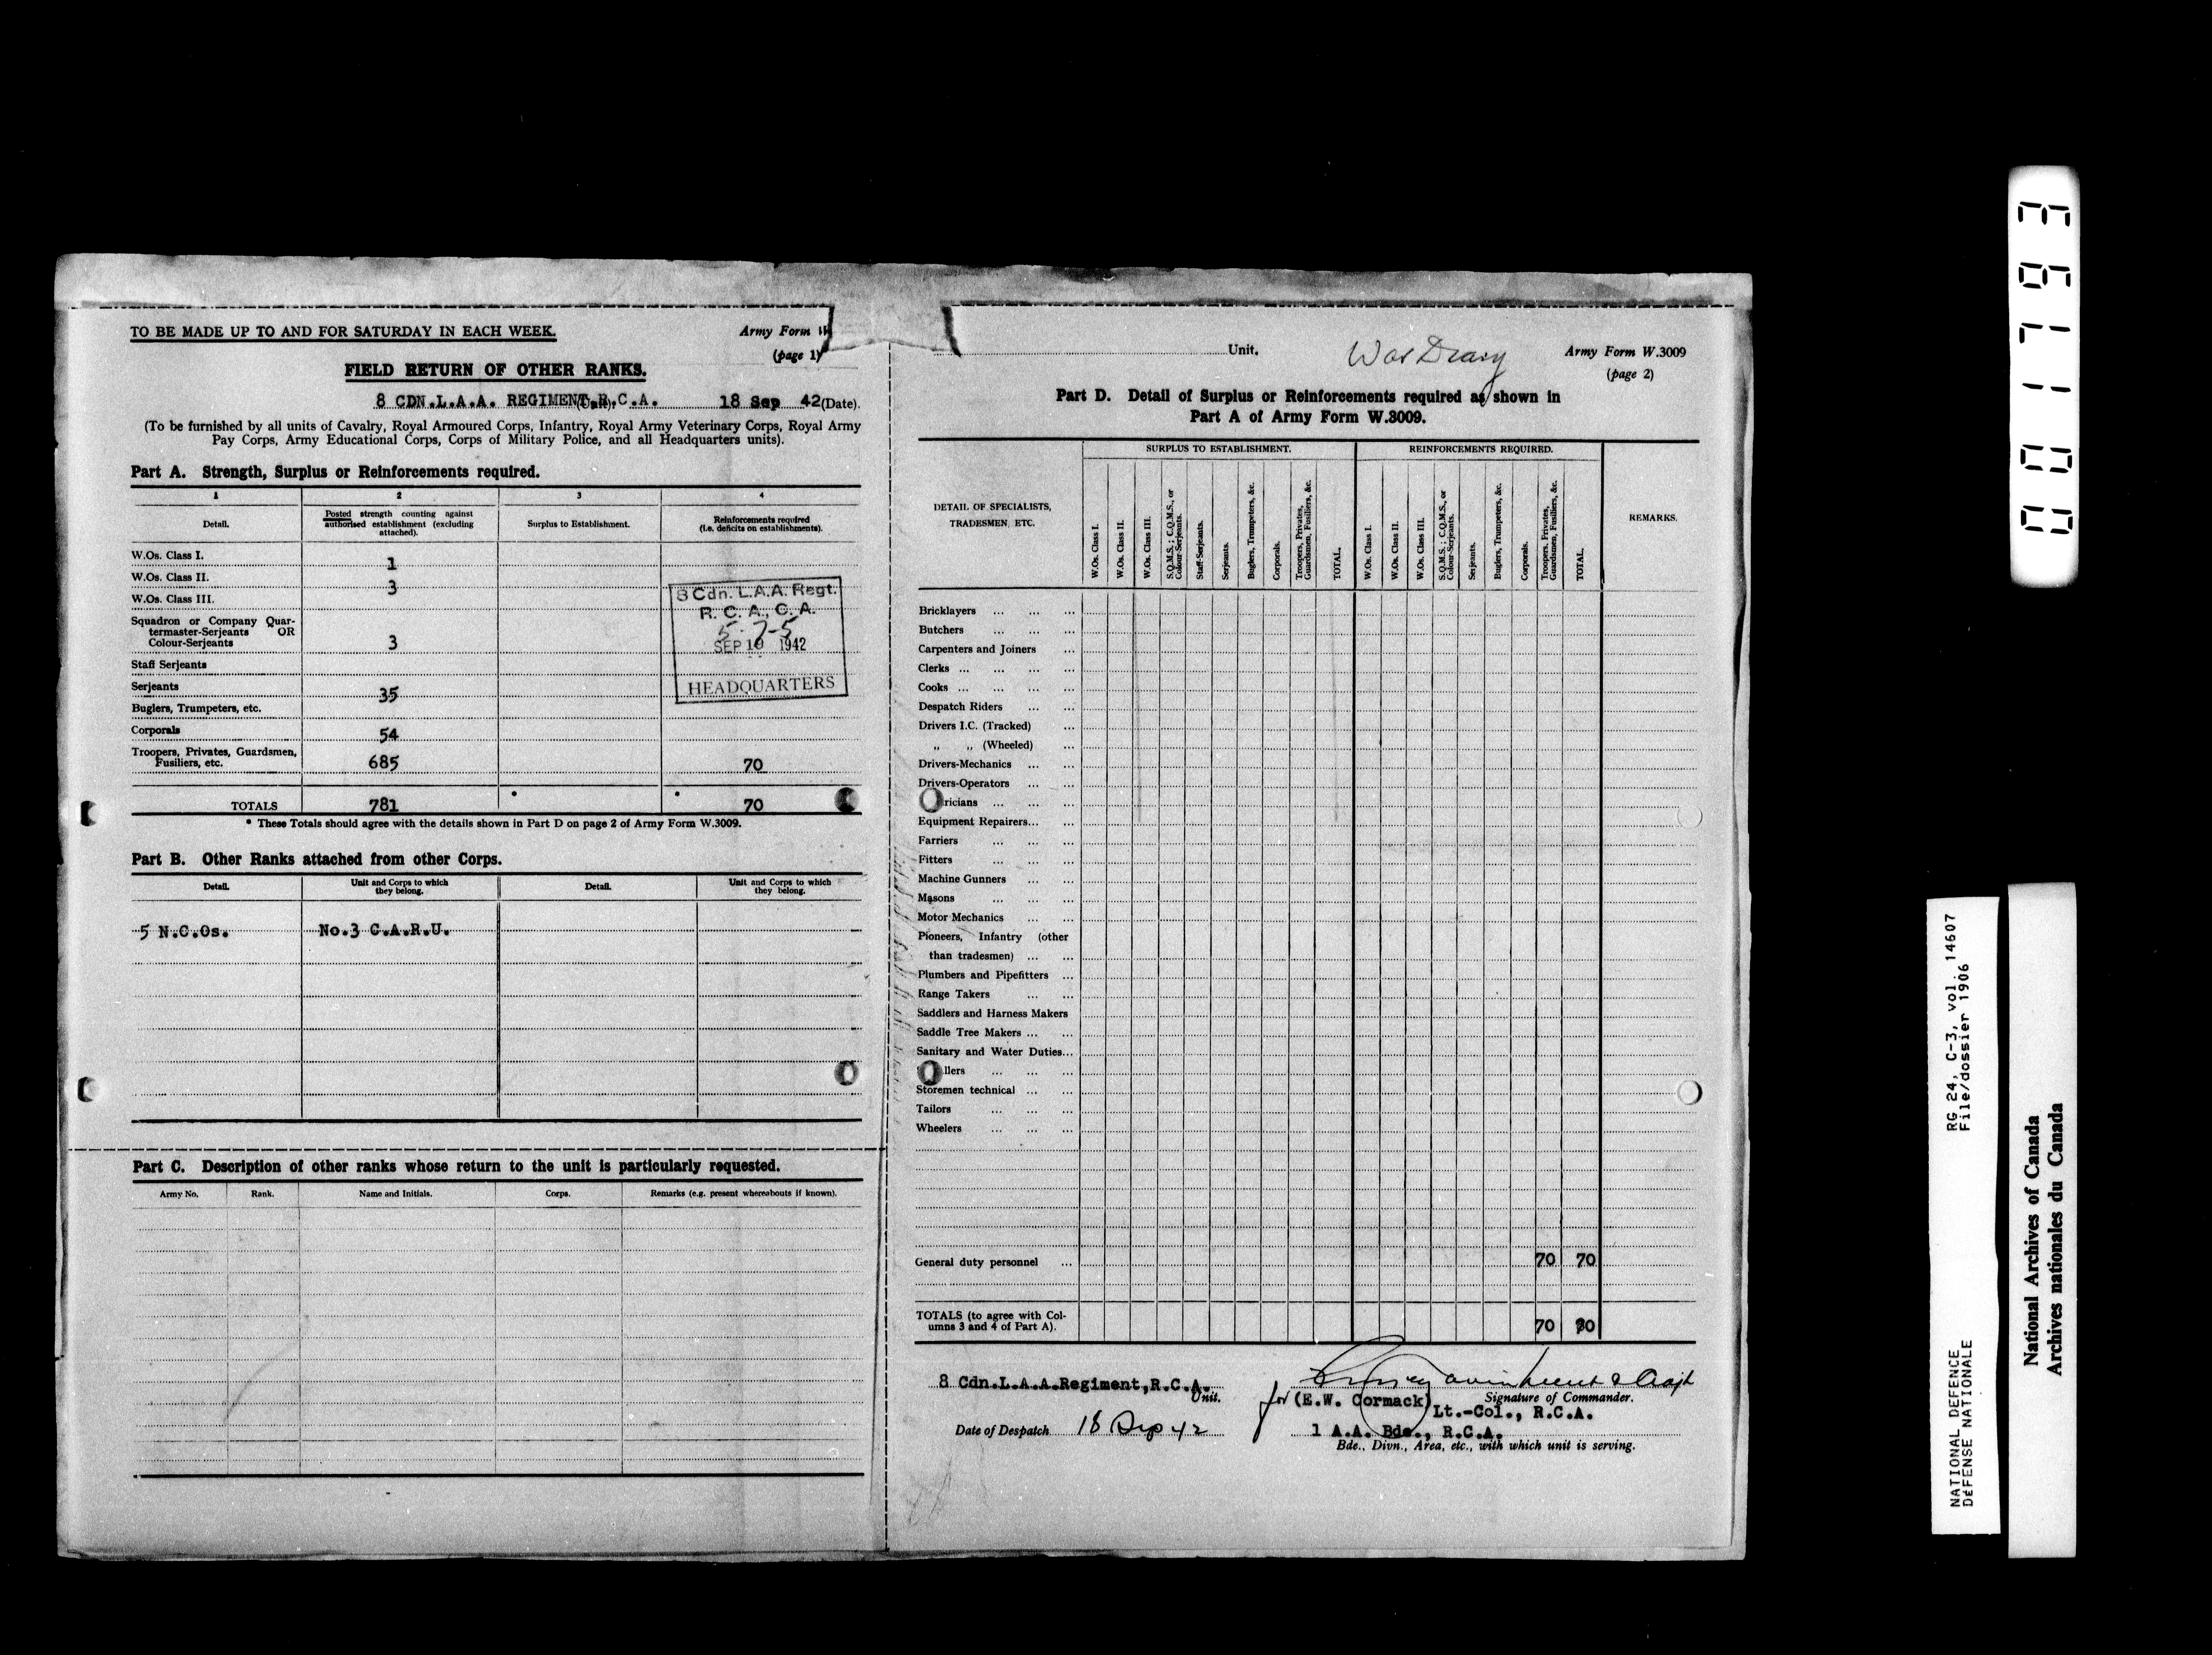 TO BE MADE UP TO AND FOR SATURDAY IN EACH WEEK.
Army Form W
(page 1)
FIELD RETURN OF OTHER RANKS.
8 CDN.L.A.A. REGIMENT,R.C.A. (Unit). 18 Sep 42 (Date).
(To be furnished by all units of Cavalry, Royal Armoured Corps, Infantry, Royal Army Veterinary Corps, Royal Army
Pay Corps, Army Educational Corps, Corps of Military Police, and all Headquarters units).
Part A. Strength, Surplus or Reinforcements required.
1 2 3 4
Detail. Posted strength counting against authorised establishment (excluding attached). Surplus to Establishment. Reinforcements required (i.e. deficits on establishments).
W.Os. Class I. 1
W.Os. Class II. 3
W.Os. Class III.
Squadron or Company Quar-
termaster-Serjeants OR
Colour-Serjeants 3
Staff Serjeants
Serjeants 35
Buglers, Trumpeters, etc.
Corporals 54
Troopers, Privates, Guardsmen,
Fusiliers, etc. 685 70
TOTALS 781 * * 70
8 Cdn. L.A.A. Regt.
R. C. A., C. A.
5-7-5
SEP 19 1942
HEADQUARTERS
* These Totals should agree with the details shown in Part D on page 2 of Army Form W.3009.
Part B. Other Ranks attached from other Corps.
Detail. Unit and Corps to which they belong. Detail. Unit and Corps to which they belong.
5 N.C.Os. No.3 C.A.R.U.
Part C. Description of other ranks whose return to the unit is particularly requested.
Army No. Rank. Name and Initials. Corps. Remarks (e.g. present whereabouts if known).
Unit.
War Diary
Army Form W.3009
(page 2)
Part D. Detail of Surplus or Reinforcements required as shown in
Part A of Army Form W.3009.
DETAIL OF SPECIALISTS, TRADESMEN, ETC.
SURPLUS TO ESTABLISHMENT.
REINFORCEMENTS REQUIRED.
REMARKS.
W.Os. Class I.
W.Os. Class II.
W.Os. Class III.
S.Q.M.S.; C.Q.M.S., or Colour-Serjeants.
Staff-Serjeants.
Serjeants.
Buglers, Trumpeters, &c.
Corporals.
Troopers, Privates, Guardsmen, Fusiliers, &c.
TOTAL.
W.Os. Class I.
W.Os. Class II.
W.Os. Class III.
S.Q.M.S.; C.Q.M.S., or Colour-Serjeants.
Serjeants.
Buglers, Trumpeters, &c.
Corporals.
Troopers, Privates, Guardsmen, Fusiliers, &c.
TOTAL.
Bricklayers ... ... ...
Butchers ... ... ...
Carpenters and Joiners ...
Clerks ... ... ... ...
Cooks ... ... ... ...
Despatch Riders ... ...
Drivers I.C. (Tracked) ...
„ „ (Wheeled) ...
Drivers-Mechanics ... ...
Drivers-Operators ... ...
ricians ... ... ...
Equipment Repairers... ...
Farriers ... ... ...
Fitters ... ... ...
Machine Gunners ... ...
Masons ... ... ...
Motor Mechanics ... ...
Pioneers, Infantry (other
than tradesmen) ... ...
Plumbers and Pipefitters ...
Range Takers ... ...
Saddlers and Harness Makers
Saddle Tree Makers ... ...
Sanitary and Water Duties...
llers ... ... ...
Storemen technical ... ...
Tailors ... ... ...
Wheelers ... ... ...
General duty personnel ... 70 70
TOTALS (to agree with Col-
umns 3 and 4 of Part A). 70 70
8 Cdn.L.A.A.Regiment,R.C.A.
Unit.
for (E.W. Cormack) Signature of Commander.
Lt.-Col., R.C.A.
Date of Despatch 18 Sep 42
1 A.A. Bde., R.C.A.
Bde., Divn., Area, etc., with which unit is serving.
NATIONAL DEFENCE RG 24, C-3, vol. 14607
DÉFENSE NATIONALE File/dossier 1906
National Archives of Canada
Archives nationales du Canada